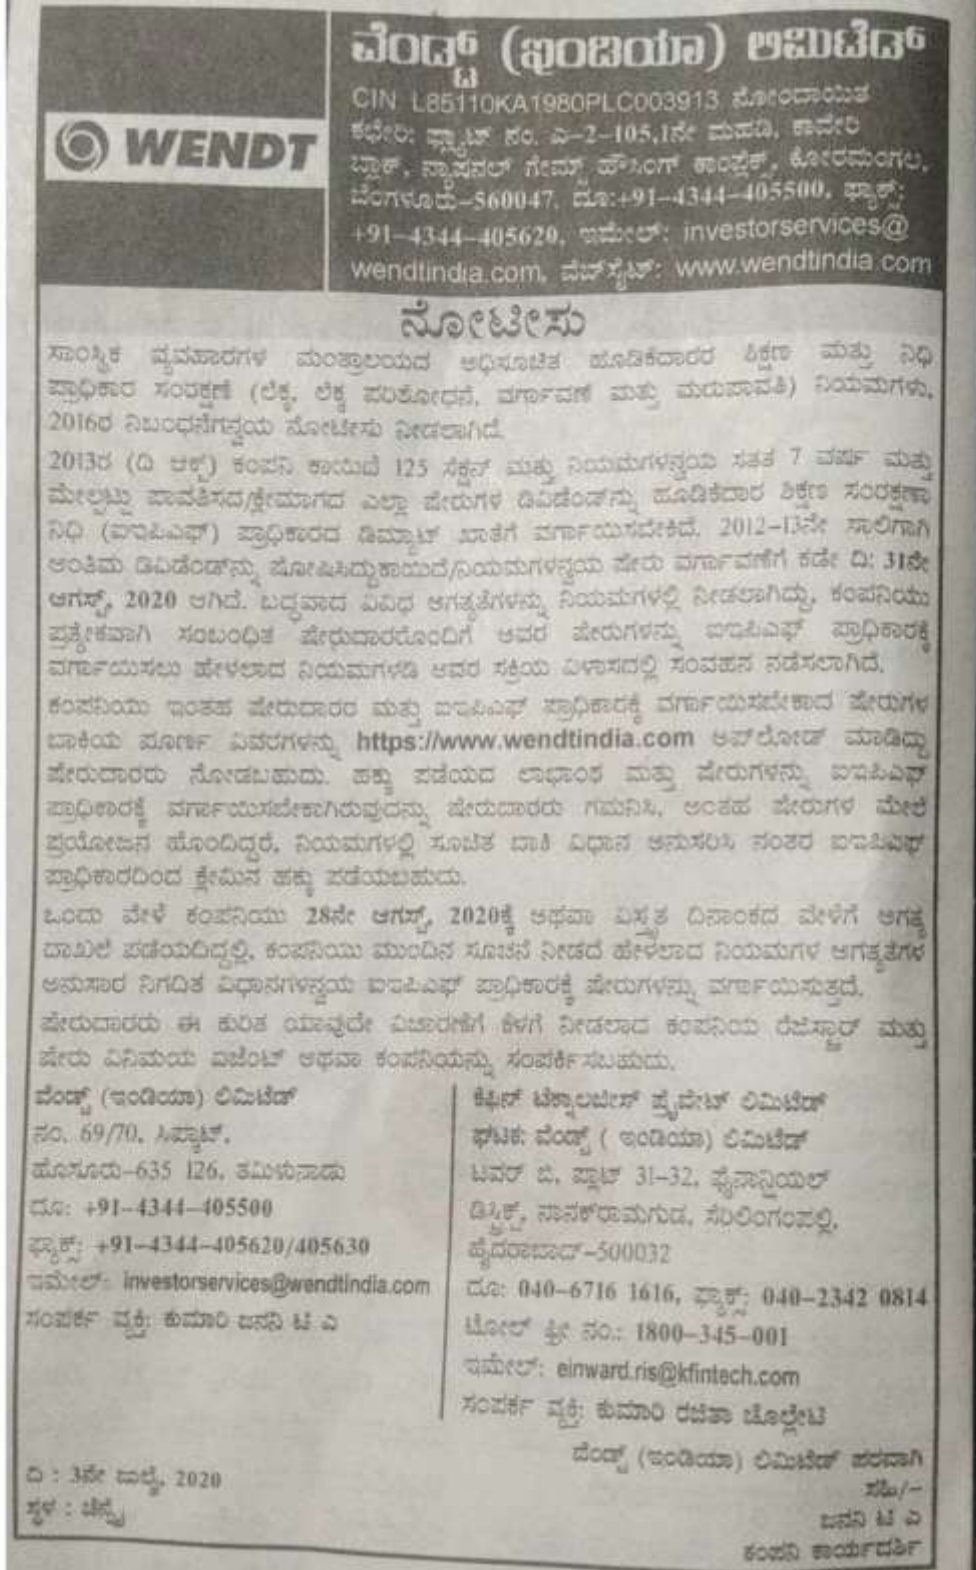 ವೆಂಡ್ಟ್ (ಇಂಡಿಯಾ) ಲಿಮಿಟೆಡ್
CIN L85110KA1980PLC003913 ನೋಂದಾಯಿತ
ಕಛೇರಿ: ಫ್ಲ್ಯಾಟ್ ನಂ. ಎ-2-105,1ನೇ ಮಹಡಿ, ಕಾವೇರಿ
ಬ್ಲಾಕ್, ನ್ಯಾಷನಲ್ ಗೇಮ್ಸ್ ಹೌಸಿಂಗ್ ಕಾಂಪ್ಲೆಕ್ಸ್, ಕೋರಮಂಗಲ,
ಬೆಂಗಳೂರು-560047, ದೂ:+91-4344-405500, ಫ್ಯಾಕ್ಸ್:
+91-4344-405620, ಇಮೇಲ್: investorservices@
wendtindia.com, ವೆಬ್‌ಸೈಟ್: www.wendtindia.com
WENDT
ನೋಟೀಸು
ಸಾಂಸ್ಥಿಕ ವ್ಯವಹಾರಗಳ ಮಂತ್ರಾಲಯದ ಅಧಿಸೂಚಿತ ಹೂಡಿಕೆದಾರರ ಶಿಕ್ಷಣ ಮತ್ತು ನಿಧಿ
ಪ್ರಾಧಿಕಾರ ಸಂರಕ್ಷಣೆ (ಲೆಕ್ಕ, ಲೆಕ್ಕ ಪರಿಶೋಧನೆ, ವರ್ಗಾವಣೆ ಮತ್ತು ಮರುಪಾವತಿ) ನಿಯಮಗಳು,
2016ರ ನಿಬಂಧನೆಗನ್ವಯ ನೋಟೀಸು ನೀಡಲಾಗಿದೆ.
2013ರ (ದಿ ಆಕ್ಟ್) ಕಂಪನಿ ಕಾಯಿದೆ 125 ಸೆಕ್ಷನ್ ಮತ್ತು ನಿಯಮಗಳನ್ವಯ ಸತತ 7 ವರ್ಷ ಮತ್ತು
ಮೇಲ್ಪಟ್ಟು ಪಾವತಿಸದ/ಕ್ಲೇಮಾಗದ ಎಲ್ಲಾ ಷೇರುಗಳ ಡಿವಿಡೆಂಡ್‌ನ್ನು ಹೂಡಿಕೆದಾರ ಶಿಕ್ಷಣ ಸಂರಕ್ಷಣಾ
ನಿಧಿ (ಐಇಪಿಎಫ್) ಪ್ರಾಧಿಕಾರದ ಡಿಮ್ಯಾಟ್ ಖಾತೆಗೆ ವರ್ಗಾಯಿಸಬೇಕಿದೆ. 2012-13ನೇ ಸಾಲಿಗಾಗಿ
ಅಂತಿಮ ಡಿವಿಡೆಂಡ್‌ನ್ನು ಘೋಷಿಸಿದ್ದುಕಾಯಿದೆ/ನಿಯಮಗಳನ್ವಯ ಷೇರು ವರ್ಗಾವಣೆಗೆ ಕಡೇ ದಿ: 31ನೇ
ಆಗಸ್ಟ್, 2020 ಆಗಿದೆ. ಬದ್ಧವಾದ ವಿವಿಧ ಅಗತ್ಯತೆಗಳನ್ನು ನಿಯಮಗಳಲ್ಲಿ ನೀಡಲಾಗಿದ್ದು, ಕಂಪನಿಯು
ಪ್ರತ್ಯೇಕವಾಗಿ ಸಂಬಂಧಿತ ಷೇರುದಾರರೊಂದಿಗೆ ಅವರ ಷೇರುಗಳನ್ನು ಐಇಪಿಎಫ್ ಪ್ರಾಧಿಕಾರಕ್ಕೆ
ವರ್ಗಾಯಿಸಲು ಹೇಳಲಾದ ನಿಯಮಗಳಡಿ ಅವರ ಸಕ್ರಿಯ ವಿಳಾಸದಲ್ಲಿ ಸಂವಹನ ನಡೆಸಲಾಗಿದೆ.
ಕಂಪನಿಯು ಇಂತಹ ಷೇರುದಾರರ ಮತ್ತು ಐಇಪಿಎಫ್ ಪ್ರಾಧಿಕಾರಕ್ಕೆ ವರ್ಗಾಯಿಸಬೇಕಾದ ಷೇರುಗಳ
ಬಾಕಿಯ ಪೂರ್ಣ ವಿವರಗಳನ್ನು https://www.wendtindia.com ಅಪ್‌ಲೋಡ್ ಮಾಡಿದ್ದು
ಷೇರುದಾರರು ನೋಡಬಹುದು. ಹಕ್ಕು ಪಡೆಯದ ಲಾಭಾಂಶ ಮತ್ತು ಷೇರುಗಳನ್ನು ಐಇಪಿಎಫ್
ಪ್ರಾಧಿಕಾರಕ್ಕೆ ವರ್ಗಾಯಿಸಬೇಕಾಗಿರುವುದನ್ನು ಷೇರುದಾರರು ಗಮನಿಸಿ, ಅಂತಹ ಷೇರುಗಳ ಮೇಲೆ
ಪ್ರಯೋಜನ ಹೊಂದಿದ್ದರೆ, ನಿಯಮಗಳಲ್ಲಿ ಸೂಚಿತ ಬಾಕಿ ವಿಧಾನ ಅನುಸರಿಸಿ ನಂತರ ಐಇಪಿಎಫ್
ಪ್ರಾಧಿಕಾರದಿಂದ ಕ್ಲೇಮಿನ ಹಕ್ಕು ಪಡೆಯಬಹುದು.
ಒಂದು ವೇಳೆ ಕಂಪನಿಯು 28ನೇ ಆಗಸ್ಟ್, 2020ಕ್ಕೆ ಅಥವಾ ವಿಸ್ತೃತ ದಿನಾಂಕದ ವೇಳೆಗೆ ಅಗತ್ಯ
ದಾಖಲೆ ಪಡೆಯದಿದ್ದಲ್ಲಿ, ಕಂಪನಿಯು ಮುಂದಿನ ಸೂಚನೆ ನೀಡದೆ ಹೇಳಲಾದ ನಿಯಮಗಳ ಅಗತ್ಯತೆಗಳ
ಅನುಸಾರ ನಿಗದಿತ ವಿಧಾನಗಳನ್ವಯ ಐಇಪಿಎಫ್ ಪ್ರಾಧಿಕಾರಕ್ಕೆ ಷೇರುಗಳನ್ನು ವರ್ಗಾಯಿಸುತ್ತದೆ.
ಷೇರುದಾರರು ಈ ಕುರಿತ ಯಾವುದೇ ವಿಚಾರಣೆಗೆ ಕೆಳಗೆ ನೀಡಲಾದ ಕಂಪನಿಯ ರೆಜಿಸ್ಟ್ರಾರ್ ಮತ್ತು
ಷೇರು ವಿನಿಮಯ ಏಜೆಂಟ್ ಅಥವಾ ಕಂಪನಿಯನ್ನು ಸಂಪರ್ಕಿಸಬಹುದು.
ವೆಂಡ್ಟ್ (ಇಂಡಿಯಾ) ಲಿಮಿಟೆಡ್
ನಂ. 69/70, ಸಿಪ್ಕಾಟ್,
ಹೊಸೂರು-635 126, ತಮಿಳುನಾಡು
ದೂ: +91-4344-405500
ಫ್ಯಾಕ್ಸ್: +91-4344-405620/405630
ಇಮೇಲ್: investorservices@wendtindia.com
ಸಂಪರ್ಕ ವ್ಯಕ್ತಿ: ಕುಮಾರಿ ಜನನಿ ಟಿ ಎ
ಕೆಫಿನ್ ಟೆಕ್ನಾಲಜೀಸ್ ಪ್ರೈವೇಟ್ ಲಿಮಿಟೆಡ್
ಘಟಕ: ವೆಂಡ್ಟ್ ( ಇಂಡಿಯಾ) ಲಿಮಿಟೆಡ್
ಟವರ್ ಬಿ, ಪ್ಲಾಟ್ 31-32, ಫೈನಾನ್ಷಿಯಲ್
ಡಿಸ್ಟ್ರಿಕ್ಟ್, ನಾನಕ್‌ರಾಮಗುಡ, ಸೆರಿಲಿಂಗಂಪಲ್ಲಿ,
ಹೈದರಾಬಾದ್-500032
ದೂ: 040-6716 1616, ಫ್ಯಾಕ್ಸ್: 040-2342 0814
ಟೋಲ್ ಫ್ರೀ ನಂ.: 1800-345-001
ಇಮೇಲ್: einward.ris@kfintech.com
ಸಂಪರ್ಕ ವ್ಯಕ್ತಿ: ಕುಮಾರಿ ರಜಿತಾ ಚೊಲ್ಲೇಟಿ
ವೆಂಡ್ಟ್ (ಇಂಡಿಯಾ) ಲಿಮಿಟೆಡ್ ಪರವಾಗಿ
ಸಹಿ/-
ಜನನಿ ಟಿ ಎ
ಕಂಪನಿ ಕಾರ್ಯದರ್ಶಿ
ದಿ : 3ನೇ ಜುಲೈ, 2020
ಸ್ಥಳ : ಚೆನ್ನೈ